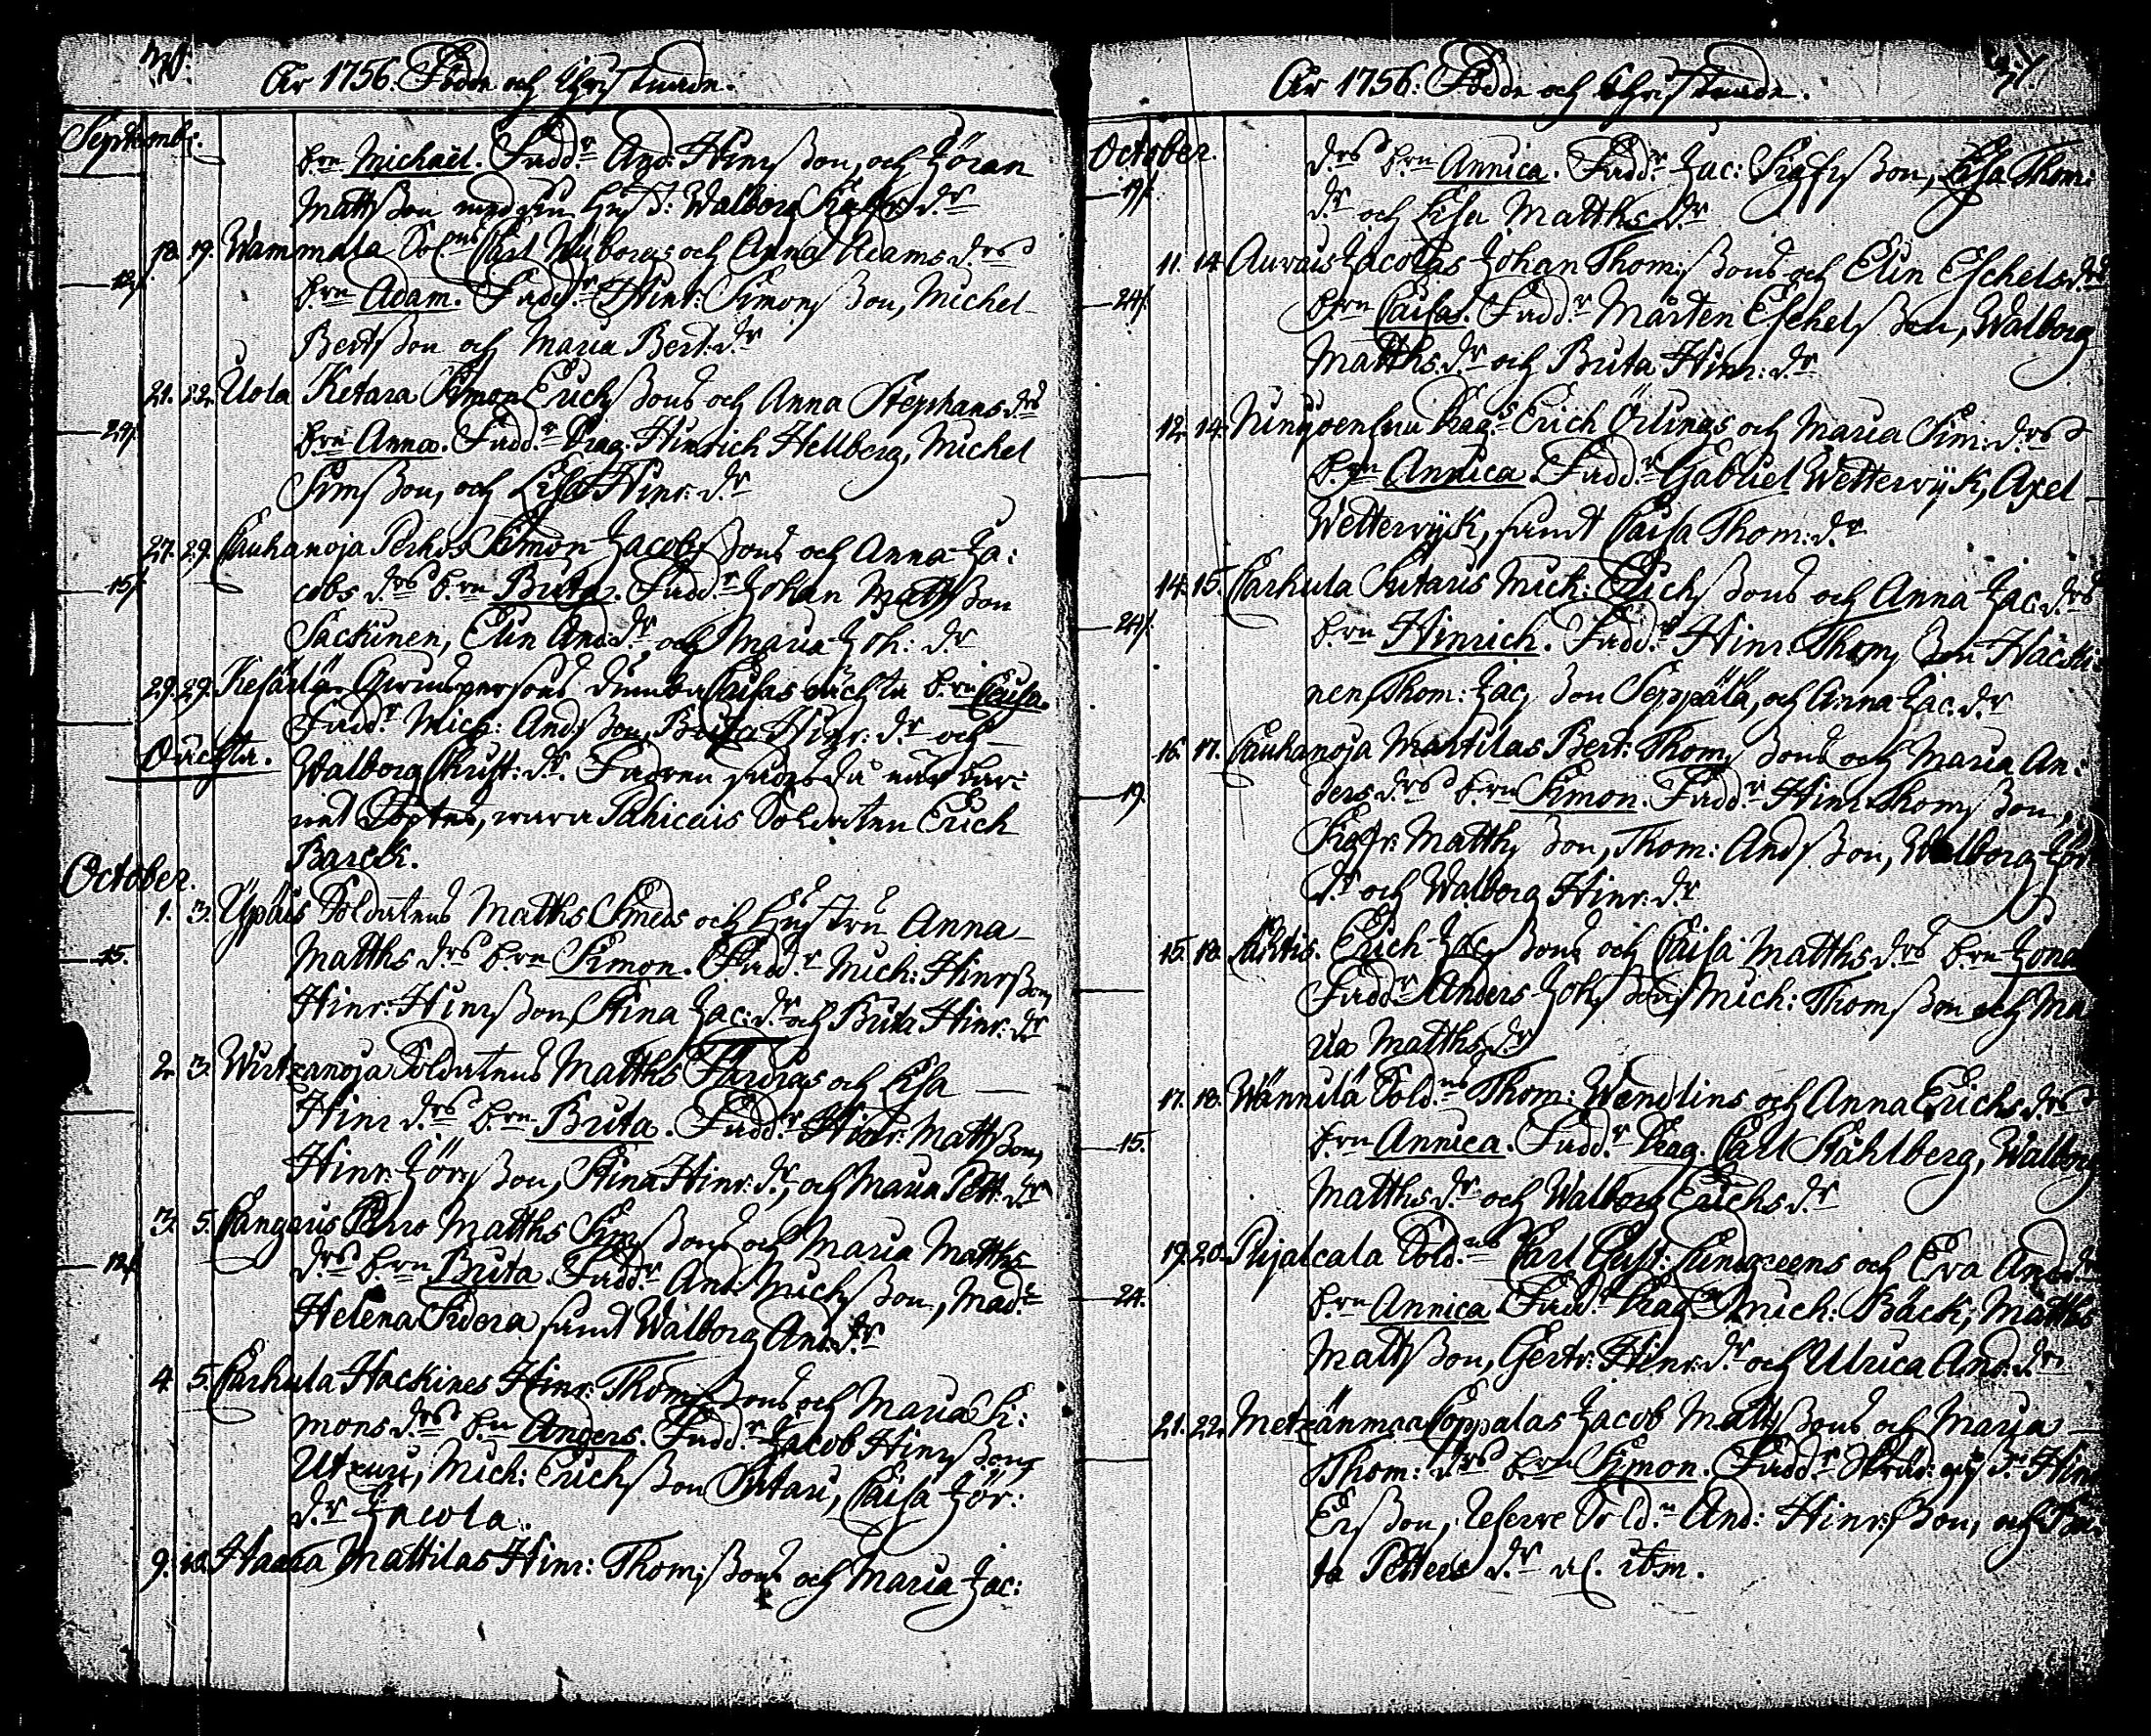 30.
År 1756. Födde och Christnade.
Septembr.
b:rn Michaël. Fadd:r And: Hinrsson, och Jöran
Mattsson med sin hust: Walborg d:r
18. 19. Wammala Sold:ns Carl Wiborgs och Anna Adams d:rs
12/. b:rn Adam. Fadd:r Hinr: Simonsson, Michel
Bertsson och Maria Bert: d:r
21. 22. Uola Ketara Simon Erichssons och Anna Stephans d:rs
29/. b:rn Anna. Fadd:r Drag: Hinrich Hellberg, Michel
Simsson, och Lisa Hinr: d:r
27. 29. Cauhanoja Perhos Simon Jacobssons och Anna Ja:
15/. cobs d:rs b:rn Brita. Fadd:r Johan Mattsson
Sackinen, Elin And: d:r och Maria Joh: d:r
29. 29. Kesärlä Caisas oächta b:rn Caisa.
Fadd:r Mich: Andsson, Brita Hinr: d:r och
Oächta. Walborg Christ: d:r. Fadren sades då när bar:
net döptes, wara Pahicais Soldaten Erich
Barck.
October.
1. 3. Ypäis Soldatens Matths Smeds och hustru Anna
15. Matths d:rs b:rn Simon. Fadd:r Mich: Hinrsson
Hinr: Hinrsson, Stina Jac: d:r och Brita Hinr: d:r
2. 3. Wirtzanoja Soldatens Matths Hardias och Lisa
Hinr d:rs b:rn Brita. Fadd:r Hinr: Mattsson,
Hinr: Jörsson, Stina Hinr: d:r, och Maria Pett: d:r
3. 5. Cangais Matths Simssons och Maria Matths
12/. d:rs b:rn Brita. Fadd:r And: Michsson, Mad:e
Helena Sidera samt Walborg And: d:r
4. 5. Carhula Hackines Hinr: Thomssons och Maria Si:
mons d:rs b:rn Anders. Fadd:r Jacob Hinrsson
Utzuri, Mich: Erichsson Sutari, Caisa Jör:
d:r Jacola.
9. 10. Haara Mattilas Hinr: Thomssons och Maria Jac:
31.
År 1756: Födde och Christnade.
October.
d:rs b:rn Annica. Fadd:r Jac: Sigfrsson, Lisa Thom:
19/. d:r och Lisa Matths d:r
11. 14. Auvais Jacolas Johan Thomssons och Elin Eschels d:rs
24/. b:rn Caisa. Fadd:r Mårten Eschelsson, Walborg
Matths d:r och Brita Hinr: d:r
12. 14. Drag:s Erich Örlings och Maria Sim: d:rs
b:rn Annica. Fadd:r Gabriel Wetterwijk, Axel
Wetterwijk, samt Caisa Thom: d:r
14. 15. Carhula Sutaris Mich: Erichssons och Anna Jac: d:rs
24/. b:rn Hinrich. Fadd:r Hinr: Thomsson Häcki:
nen, Thom: Jacsson Seppälä, och Anna Jac: d:r
16. 17. Cauhanoja Martilas Bert: Thomssons och Maria An:
19. ders d:rs b:rn Simon. Fadd:r Hinr: Thomsson,
Sigfr: Matthsson, Thom: Andsson, Walborg Jör
d:r och Walborg Hinr: d:r
15. 18. Erich Jacssons och Caisa Matths d:rs b:rn Jona
Fadd:r Anders Johsson, Mich: Thomsson och Ma
ria Matths d:r
17. 18. Wännilä Sold:ns Thom: Wendlins och Anna Erichs d:rs
15. b:rn Annica. Fadd:r Drag. Carl Ståhlberg, Walborg
Matths d:r och Walborg Erichs d:r
19. 20. Pijalcala Sold:ns Carl Gust: Lindgreens och Eva And: d:rs
24. b:rn Annica. Fadd:r Drag:n Mich: Bäck, Matths
Mattsson, Gertr: Hinr: d:r och Ulrica And: d:r
21. 22. Metzänmaa Coppalas Jacob Mattssons och Maria
Thom: d:rs b:rn Simon. Fadd:r Hinr
Ersson, reserve Sold:n And: Hinrsson, och Bri
ta Petters d:r